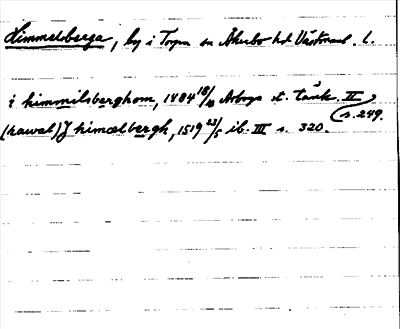 Himmelsberga, by i Torpa sn Åkerbo hd Västmanl. l.
i himmilsberghom, 1484 18/10 Arboga st. tänk. II s. 249.
(hawet) J himælbergh, 1519 23/5 ib. III s. 320.